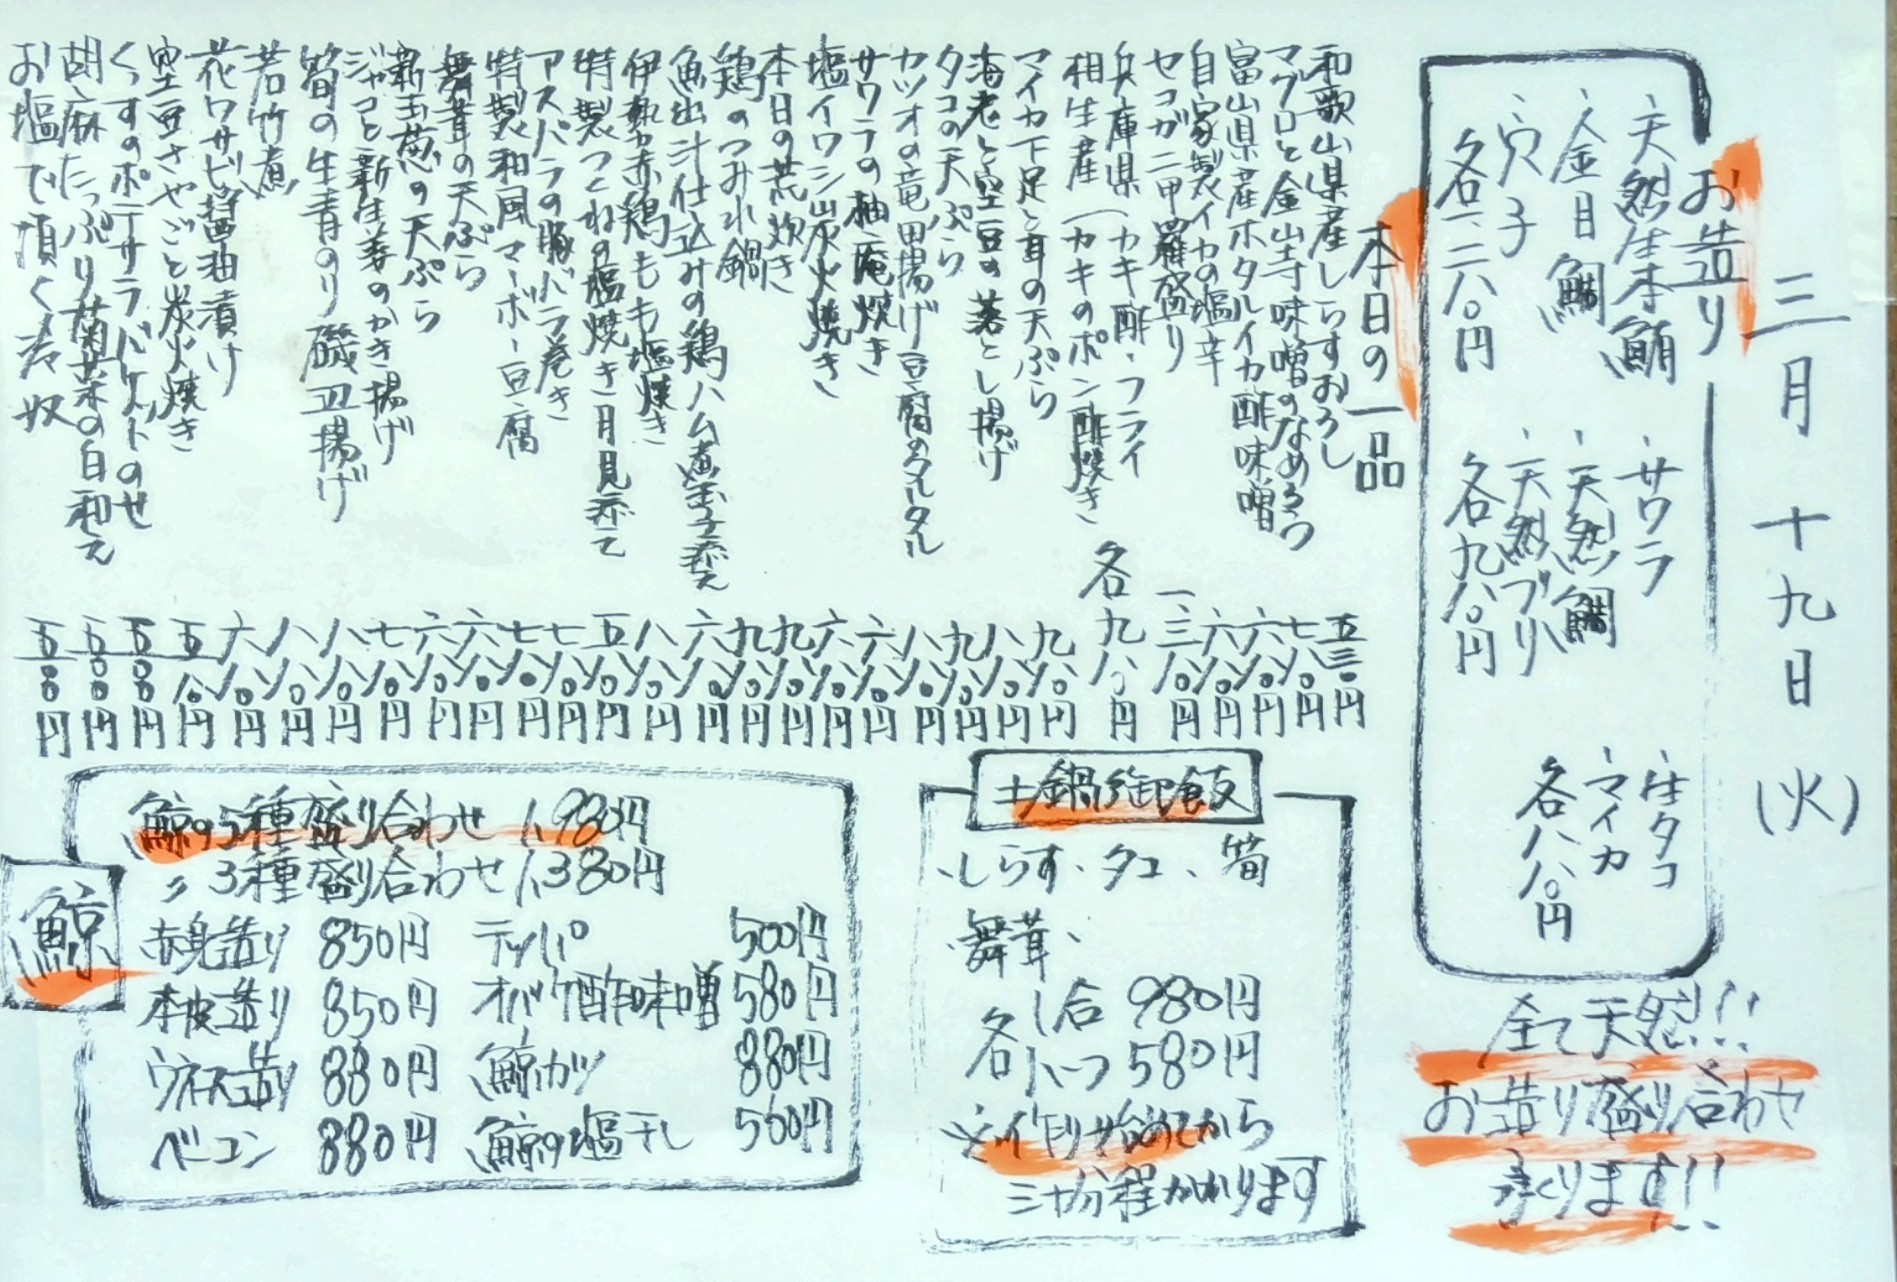 三月十九日(火)
お造り
・天然生本鮪
・金目鯛
・穴子
各一、二八〇円
・サワラ
・天然鯛
・天然ブリ
各九八〇円
・生タコ
・マイカ
各八八〇円
全て天然!!
お造り盛り合わせ
承ります!!
本日の一品
和歌山県産しらすおろし 五三〇円
マグロと金山寺味噌のなめろう 七八〇円
富山県産ホタルイカ酢味噌 六八〇円
自家製イカの塩辛 六八〇円
セコガニ甲羅盛り 一、三八〇円
兵庫県(カキ酢・フライ
相生産(カキのポン酢焼き 各九八〇円
マイカ下足と耳の天ぷら 九八〇円
海老と空豆の落とし揚げ 八八〇円
タコの天ぷら 九八〇円
カツオの竜田揚げ豆腐のタルタル 八八〇円
サワラの柚庵焼き 六八〇円
塩イワシ炭火焼き 六八〇円
本日の荒炊き 九八〇円
鶏のつみれ鍋 九八〇円
魚出汁仕込みの鶏ハム煮玉子添え 六八〇円
伊勢赤鶏もも塩焼き 八八〇円
特製つくねの塩焼き月見添て 五八〇円
アスパラの豚バラ巻き 七八〇円
特製和風マーボー豆腐 七八〇円
舞茸の天ぷら 六八〇円
新玉葱の天ぷら 六八〇円
ジャコと新生姜のかき揚げ 七八〇円
筍の生青のり磯辺揚げ 八八〇円
若竹煮 八八〇円
花ワサビ醤油漬け 六八〇円
空豆さやごと炭火焼き 五八〇円
くっすのポテサラバケットのせ 五〇〇円
胡麻たっぷり菊菜の白和え 五〇〇円
お塩で頂く冷奴 五〇〇円
土鍋御飯
・しらす、タコ、筍
・舞茸、
各 1合 980円
ハーフ 580円
※作り始めてから
三十分程かかります
鯨
鯨の5種盛り合わせ 1,980円
〃 3種盛り合わせ 1,380円
赤身造り 850円
本皮造り 850円
ウネス造り 880円
ベーコン 880円
テッパ 500円
オバケ酢味噌 580円
鯨カツ 880円
鯨の塩干し 560円